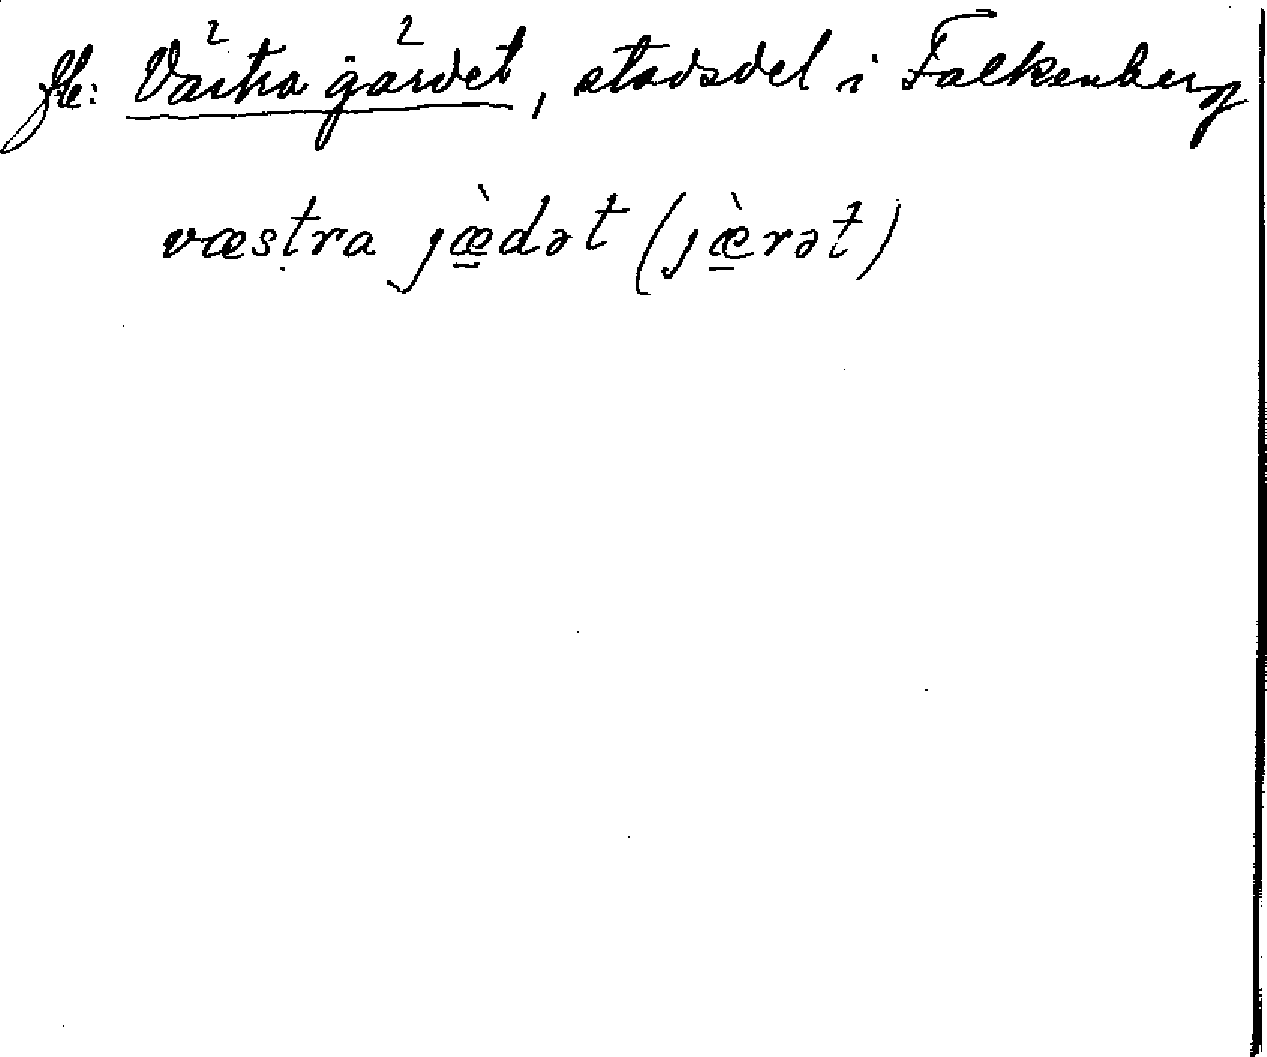 fk: Västra gärdet, stadsdel i Falkenberg
væstra jæ̠̀dət (jæ̠̀rət)